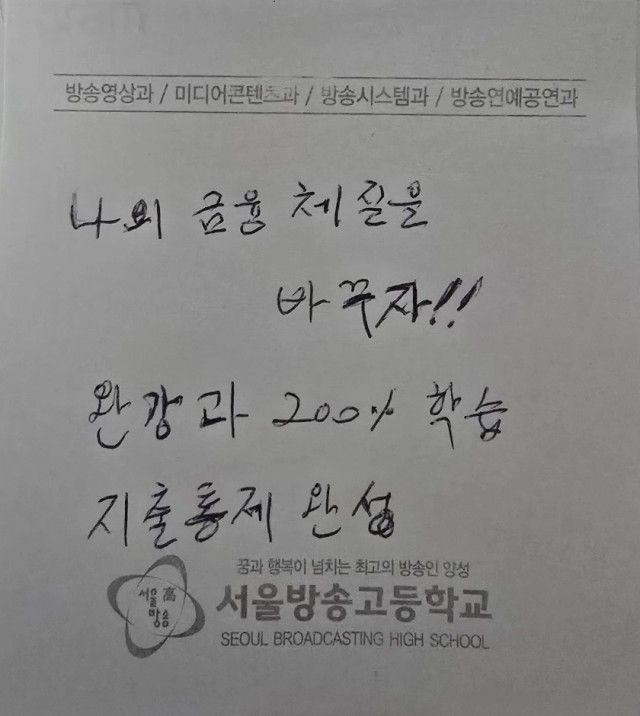 방송영상과 / 미디어콘텐츠과 / 방송시스템과 / 방송연예공연과
나의 금융 체질을
바꾸자!!
완강과 200% 학습
지출통제 완성
꿈과 행복이 넘치는 최고의 방송인 양성
서울高
방송
서울방송고등학교
SEOUL BROADCASTING HIGH SCHOOL